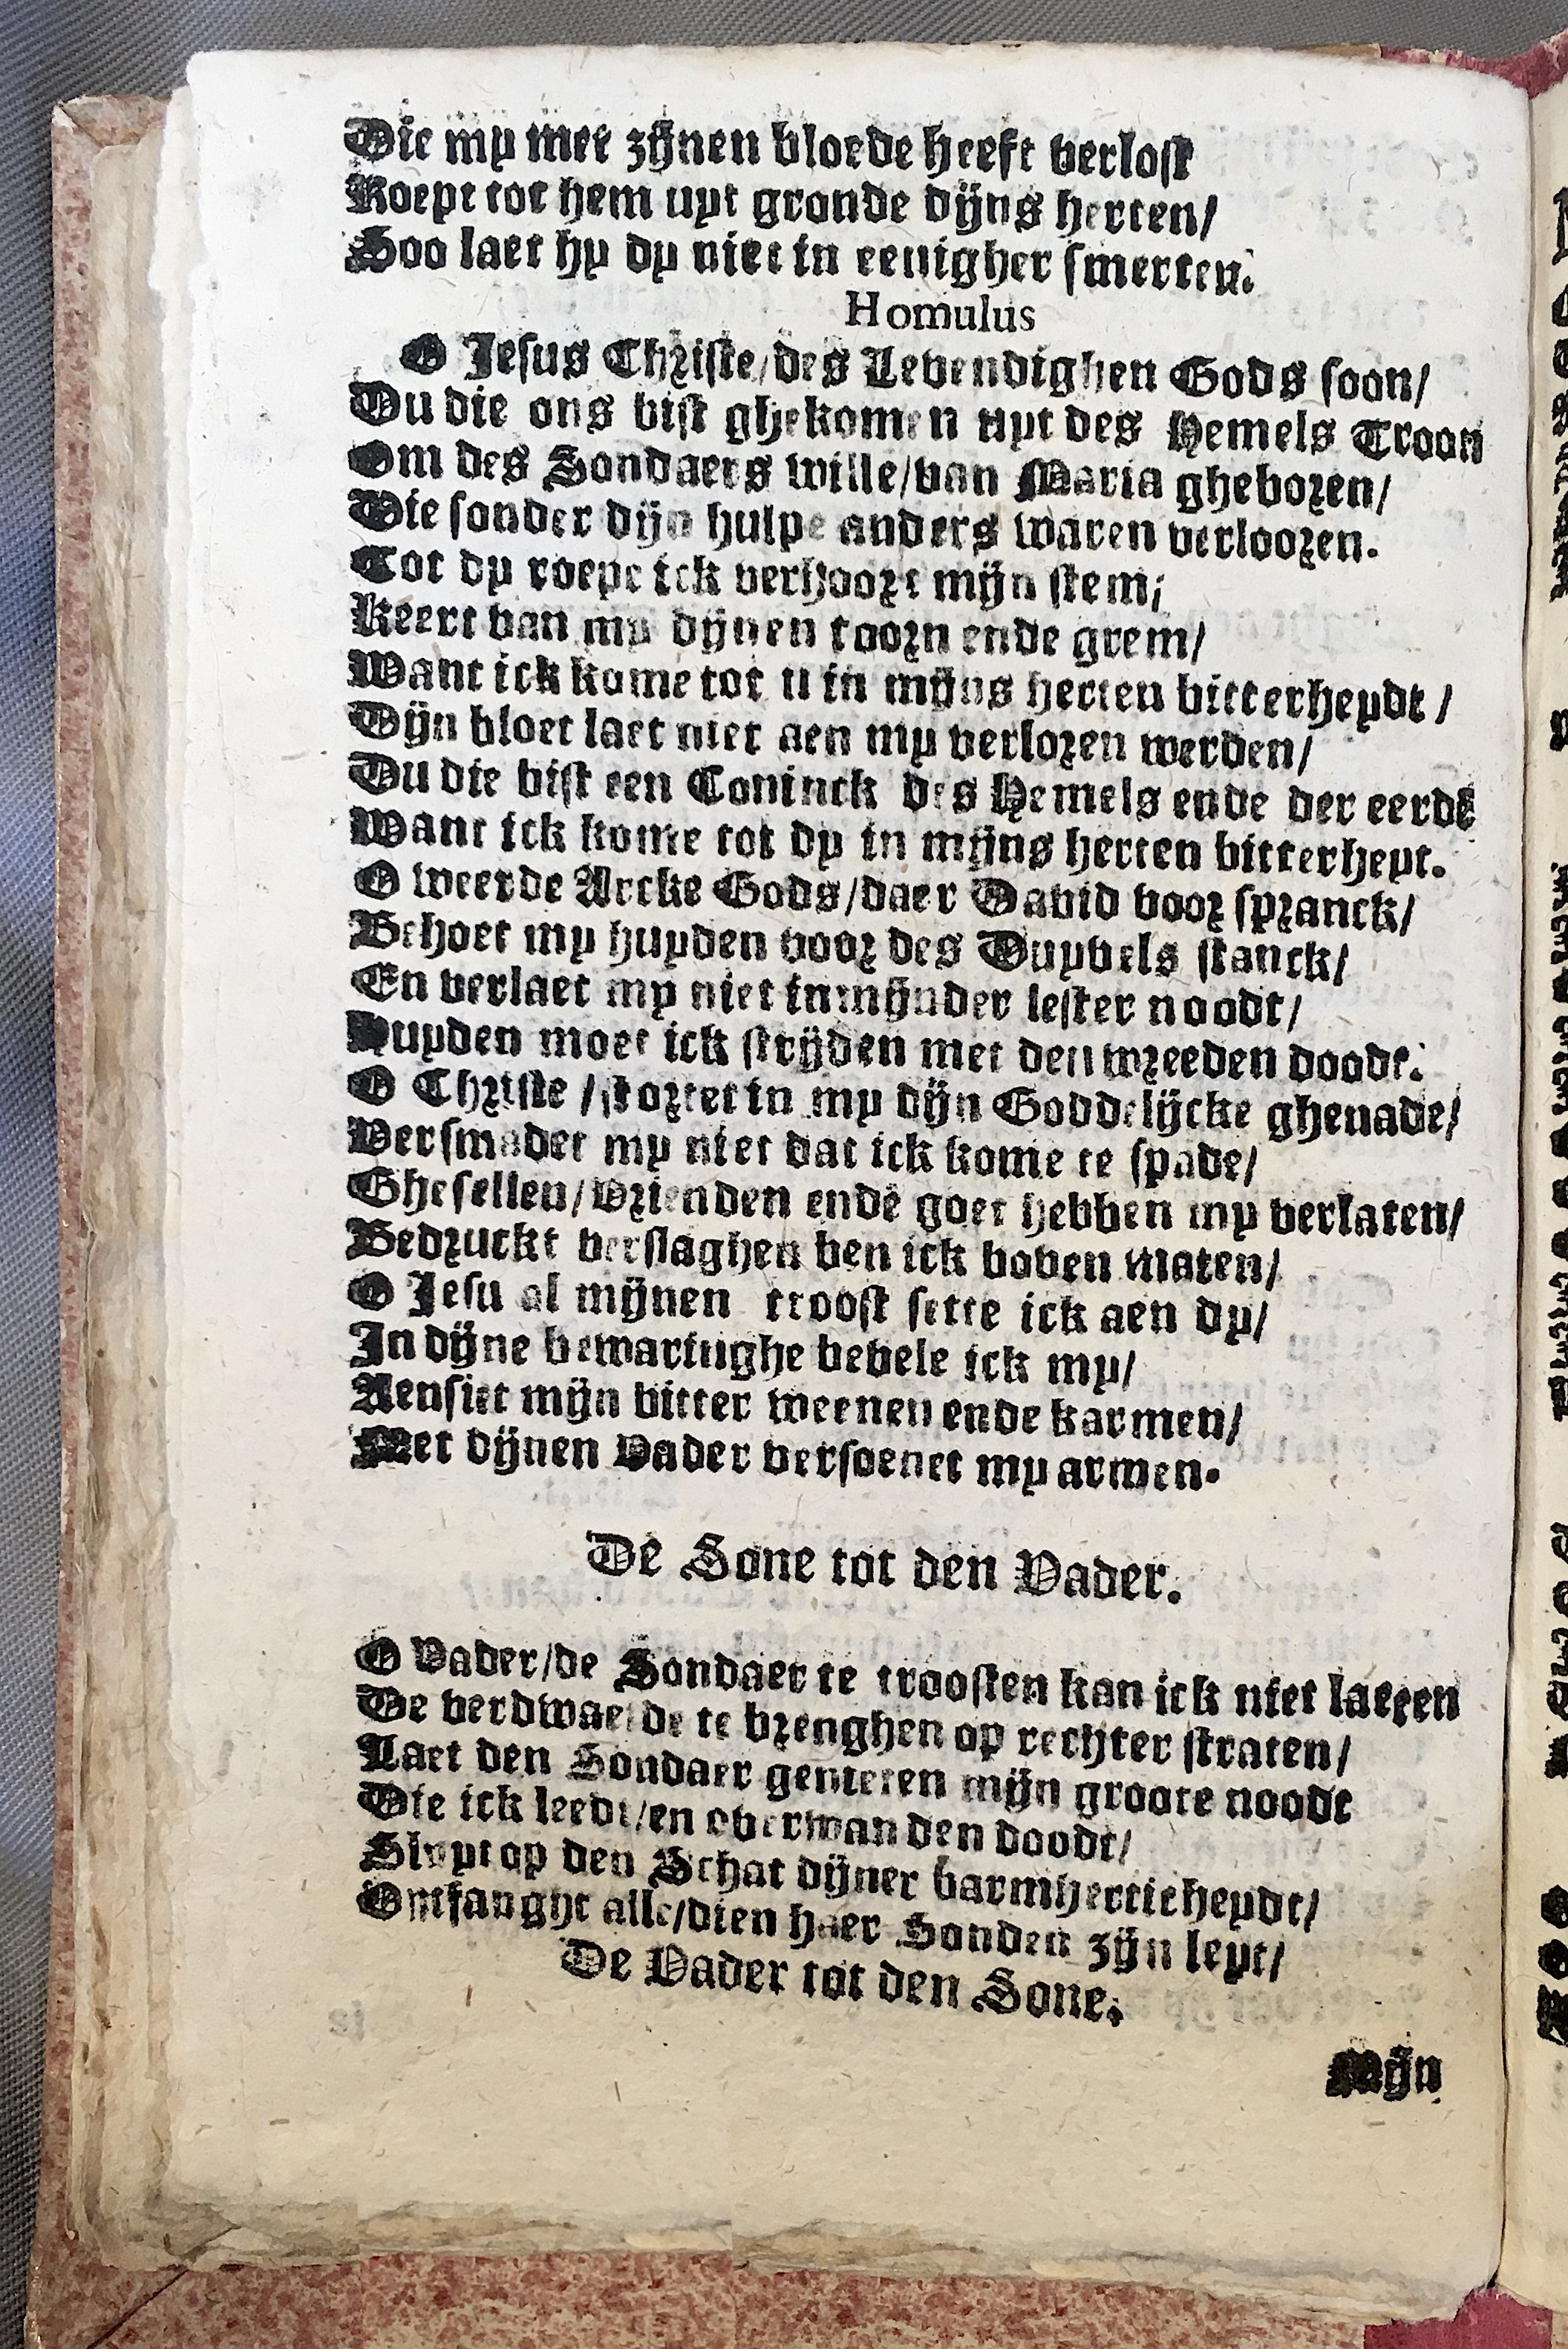 Die my met zijnen bloede heeft verlost
Roept tot hem uyt gronde dijns herten/
Soo laet hy dy niet in eenigher smerten.
Homulus
O Jesus Christe/des Levendighen Gods soon/
Du die ons bist ghekomen uyt des Hemels Troon
Om des Sondaers wille/van Maria gheboren/
Die sonder dijn hulpe anders waren verlooren.
Tot dy roepe ick verhoort mijn stem;
Keert van my dijnen toorn ende grem/
Want ick kome tot u in mijns herten bitterheydt/
Dijn bloet laet niet aen my verloren werden/
Du die bist een Coninck des Hemels ende der eerdē
Want ick kome tot dy in mijns herten bitterheyt.
O weerde Arcke Gods/daer David voor spranck/
Behoet my huyden voor des Duyvels stanck/
En verlaet my niet in mijnder lester noodt/
Huyden moet ick strijden met den wreeden doodt.
O Christe/stortet in my dijn Goddelijcke ghenade/
Versmadet my niet dat ick kome te spade/
Ghesellen/Vrienden ende goet hebben my verlaten/
Bedruckt verslaghen ben ick boven maten/
O Jesu al mijnen troost sette ick aen dy/
In dijne bewaringhe bevele ick my/
Aensiet mijn bitter weenen ende karmen/
Met dijnen Vader versoenet my armen.
De Sone tot den Vader.
O Vader/de Sondaer te troosten kan ick niet laeten
De verdwaelde te brenghen op rechter straten/
Laet den Sondaer genieten mijn groote noodt
Die ick leedt/en overwan den doodt/
Sluyt op den Schat dijner barmherticheydt/
Ontfanght alle/dien haer Sonden zijn leyt/
De Vader tot den Sone.
Mijn